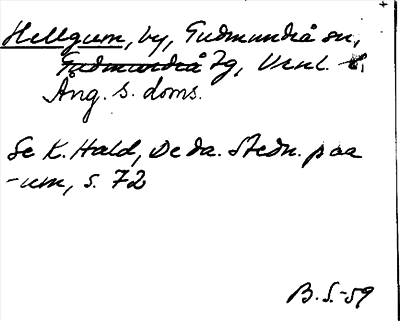 Hellgum, by, Gudmundrå sn,
Gudmundrå tg, Vnl. l.
Ång. s. doms.
Se K. Hald, De da. Stedn. paa
-um, s. 72
B. S. -59